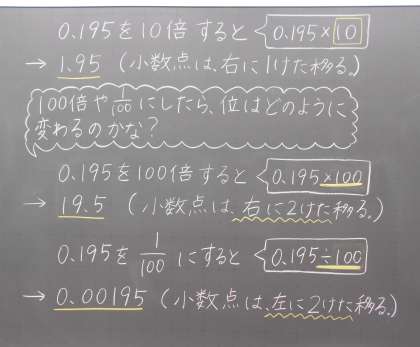 0.195を10倍すると 0.195×10
→ 1.95 (小数点は、右に1けた移る。)
100倍や1/100にしたら、位はどのように
変わるのかな?
0.195を100倍すると 0.195×100
→ 19.5 (小数点は、右に2けた移る。)
0.195を1/100にすると 0.195÷100
→ 0.00195 (小数点は、左に2けた移る。)